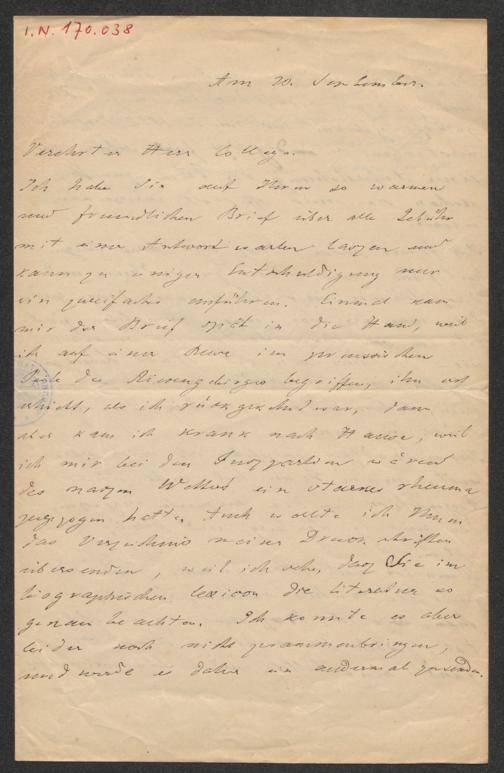 I.N. 170.038
Am 20. September.
Verehrter Herr College.
Ich habe Sie auf Ihren so warmen
und freundlichen Brief über alle Gebühr
mit einer Antwort warten laszen und
kann zu einiger Entschuldigung nur
ein zweifaches anführen. Einmal kam
mir der Brief spät in die Hand, weil
ich auf einer Reise im preussischen
Teile des Riesengebirges begriffen, ihn erst
erhielt, als ich rückgekehrt war, dann
aber kam ich krank nach Hause, weil
ich mir bei den Fuszpartien wärend
des naszen Wetters ein starkes Rheuma
zugezogen hatte. Auch wollte ich Ihnen
das Verzeichnis meiner Druckschriften
übersenden, weil ich sehe, dasz Sie im
biographischen Lexicon die Literatur so
genau beachten. Ich konnte es aber
leider noch nicht zusammenbringen,
und werde es daher ein andermal zusenden.